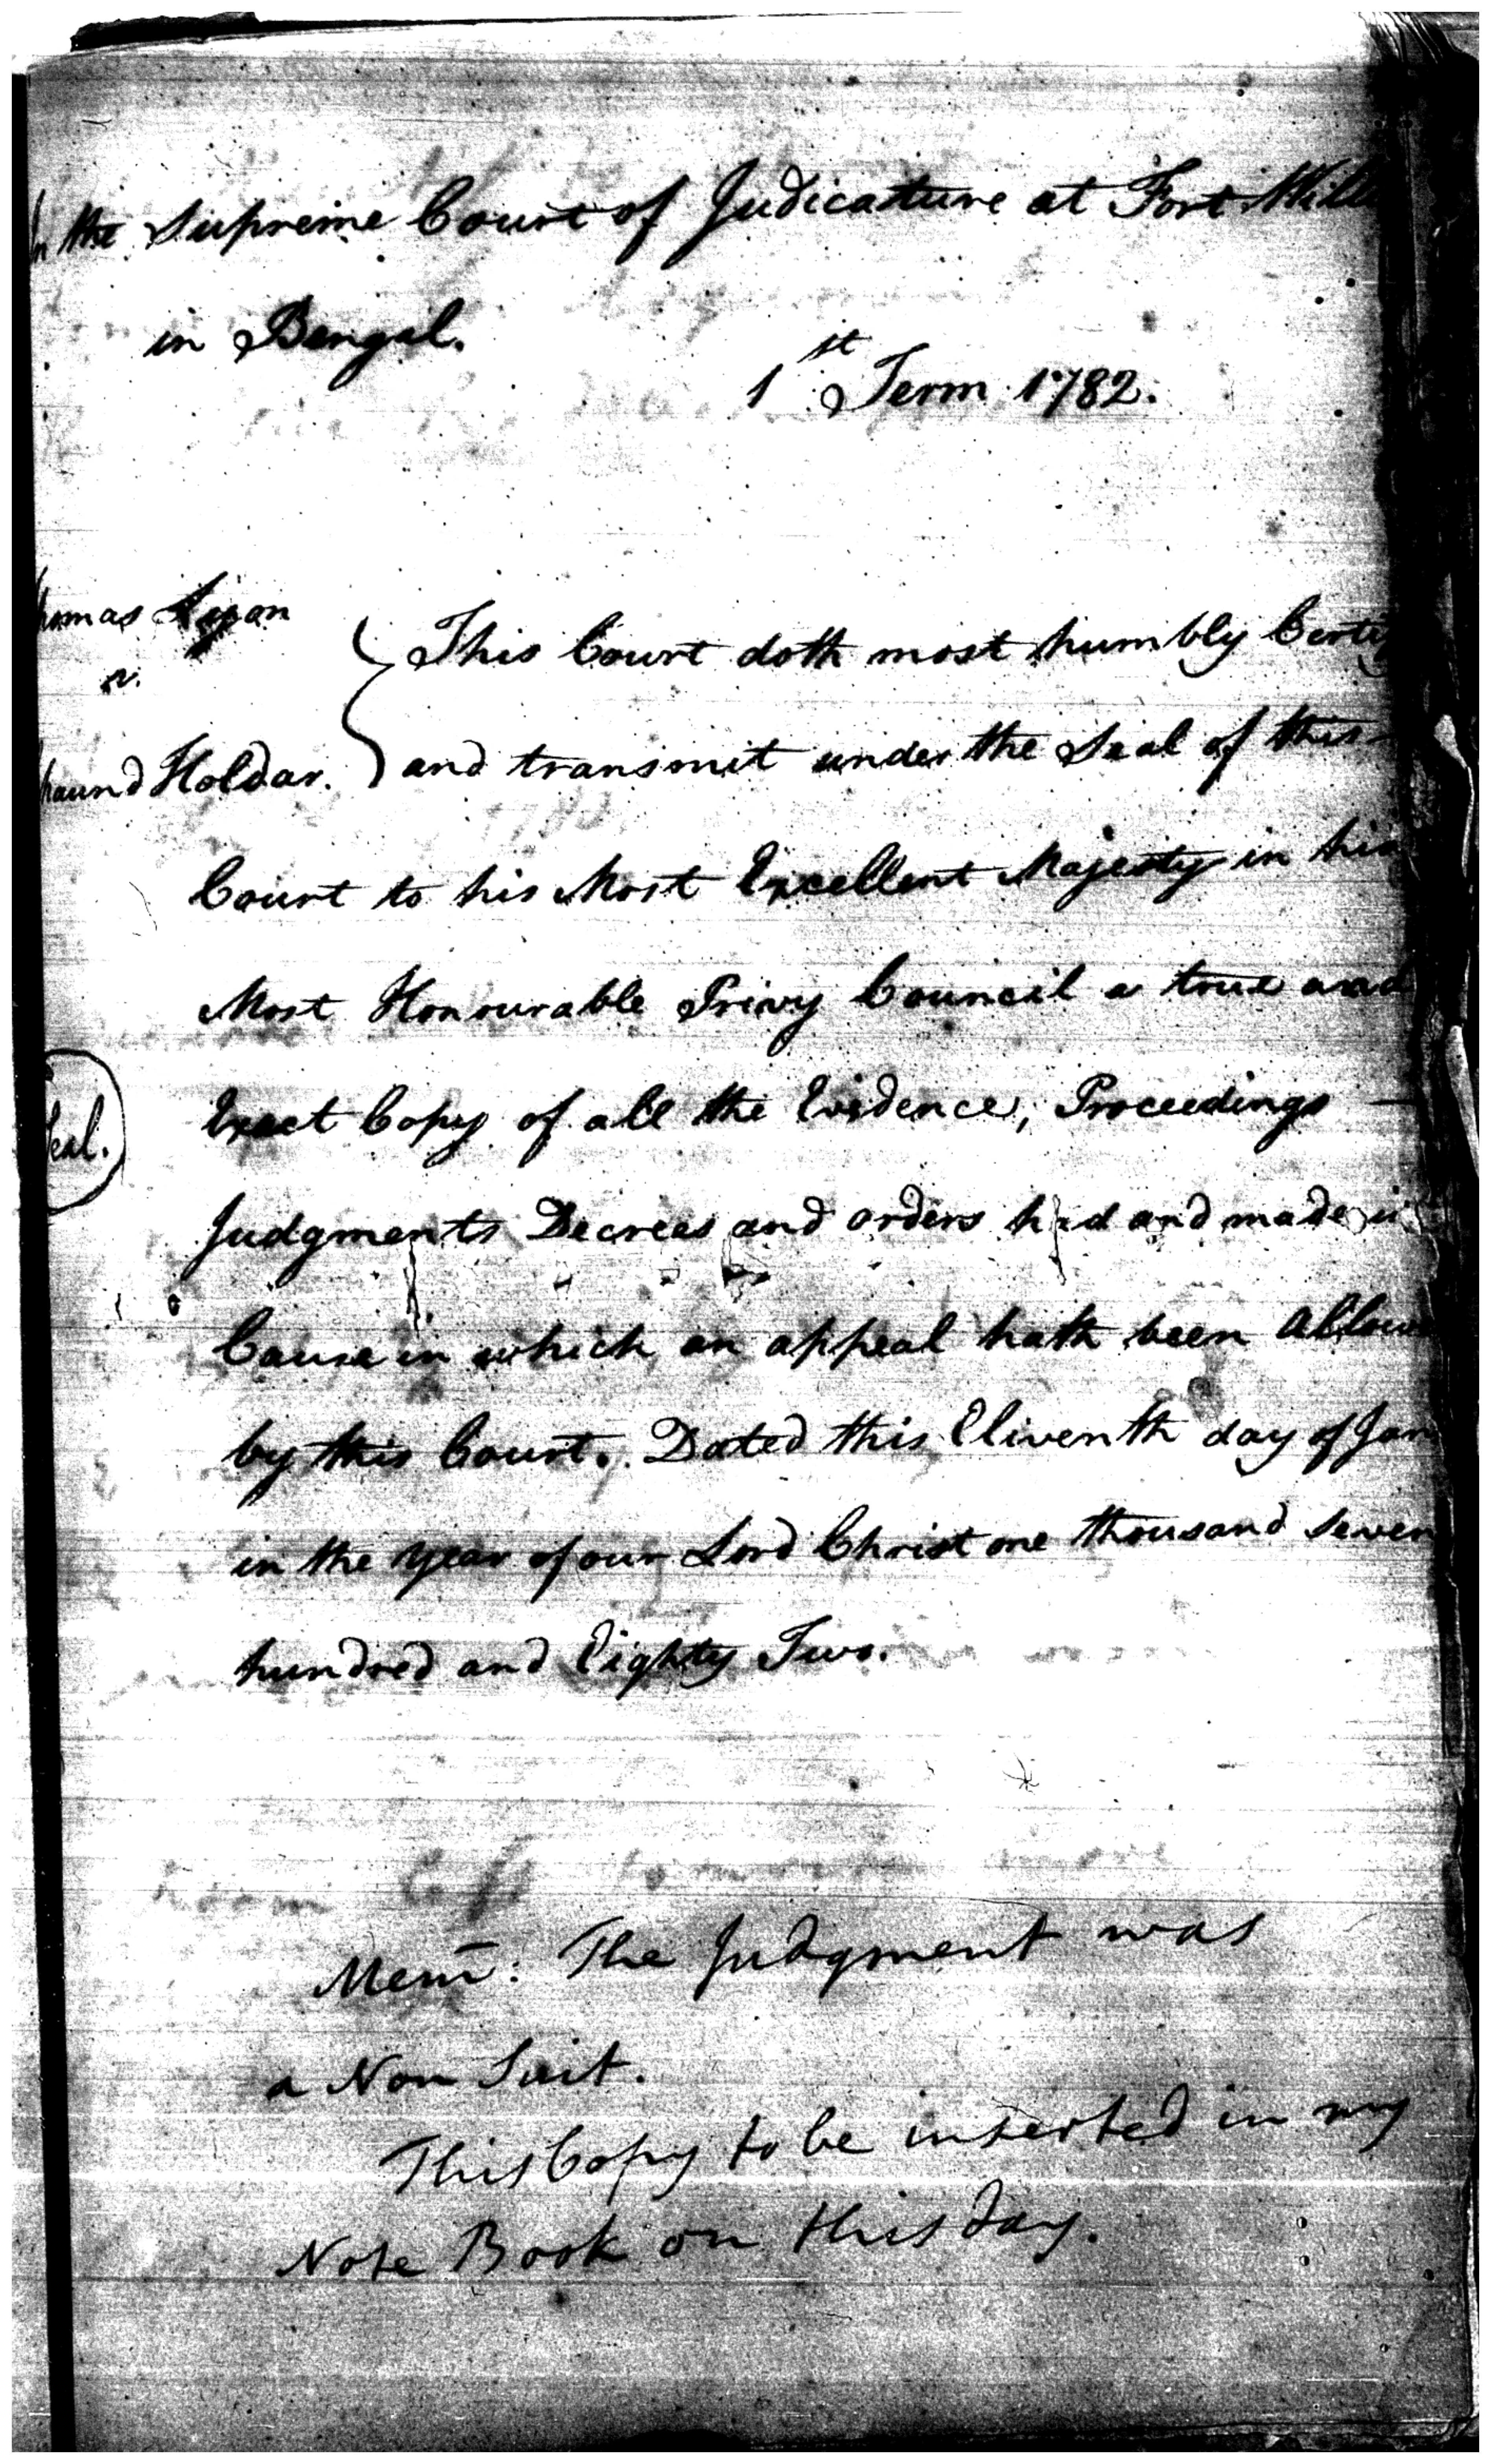 In the Supreme Court of Judicature at Fort Will
in Bengal.
1st Term 1782.
homas Lyon
v.
haund Holdar.
This Court doth most humbly Certi
and transmit under the Seal of this
Court to his Most Excellent Majesty in his
Most Honourable Privy Council a true and
Exact Copy of all the Evidence, Proceedings —
Judgments Decrees and orders had and made in
Cause in which an appeal hath been Allowe
by this Court. Dated this Eleventh day of Jan
in the year of our Lord Christ one thousand seven
hundred and Eighty Two.
eal.
Mem̄: The Judgment was
a Non Suit.
This Copy to be inserted in my
Note Book on this day.